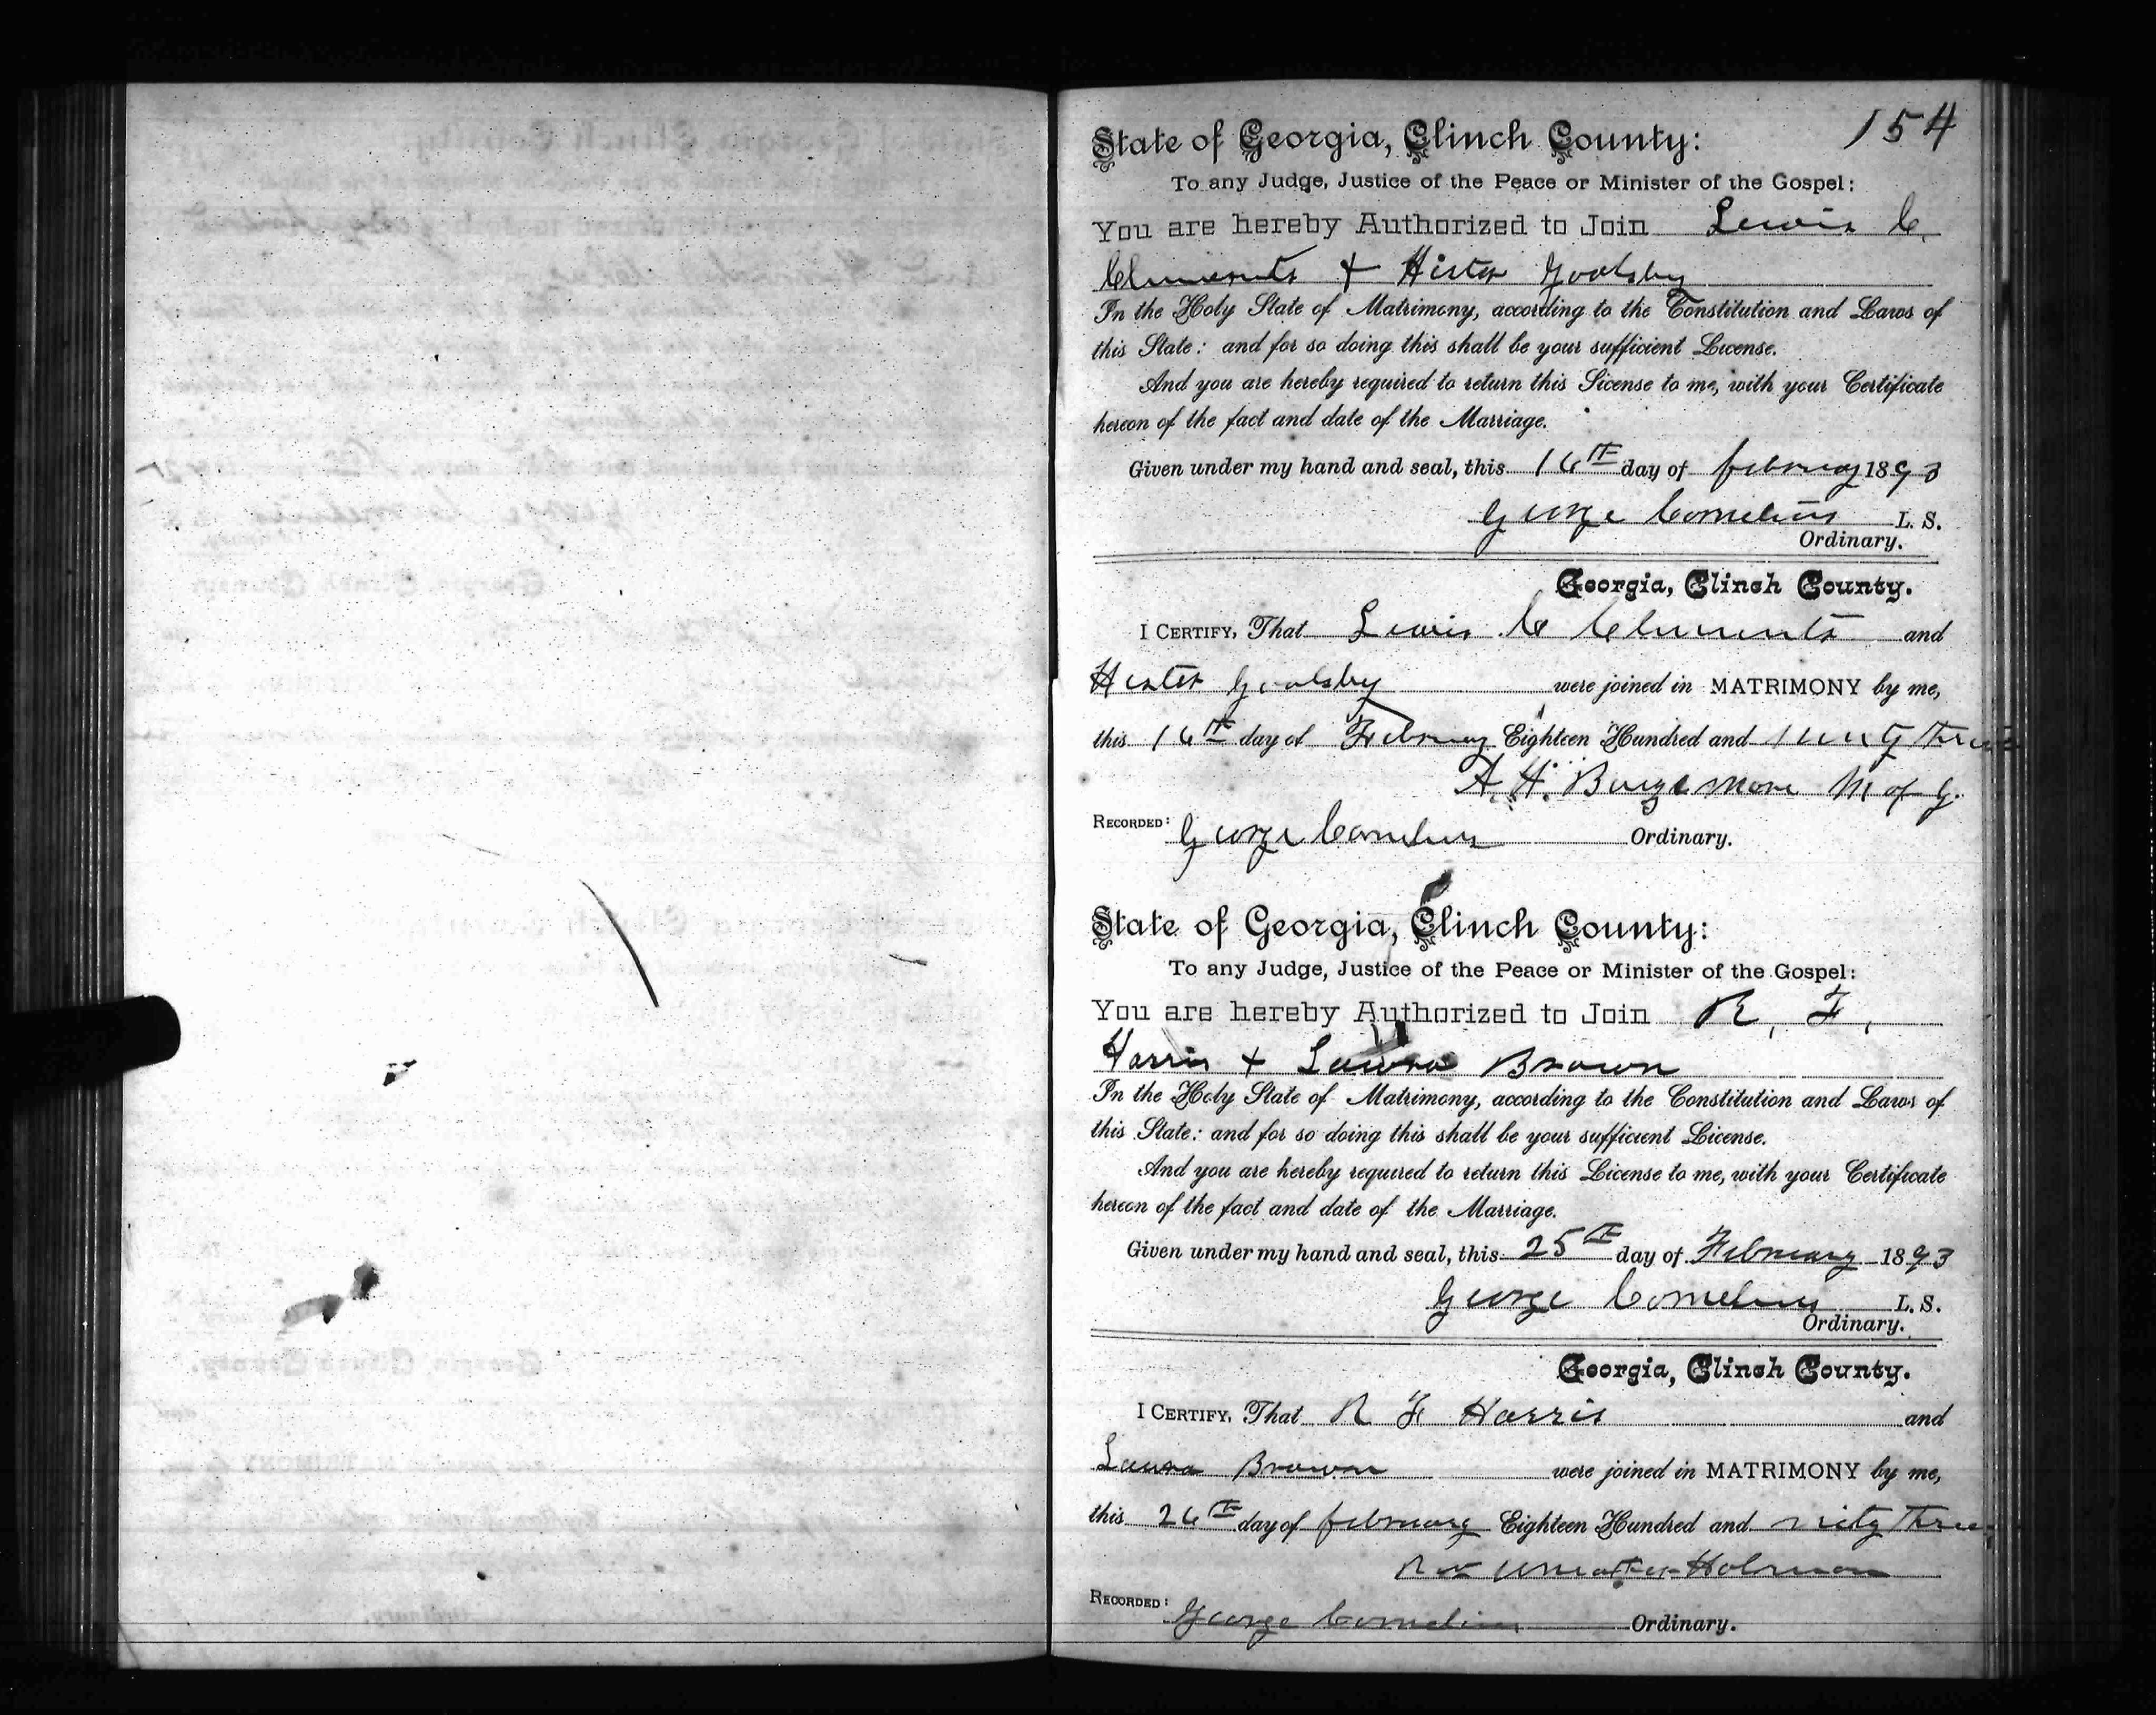 154
State of Georgia, Clinch County:
To any Judge, Justice of the Peace or Minister of the Gospel:
You are hereby Authorized to Join Lewis C.
Clements + Hester Goolsby
In the Holy State of Matrimony, according to the Constitution and Laws of
this State: and for so doing this shall be your sufficient License.
And you are hereby required to return this License to me, with your Certificate
hereon of the fact and date of the Marriage.
Given under my hand and seal, this 16th day of February 1893
George Cornelius L. S.
Ordinary.
Georgia, Clinch County.
I CERTIFY, That Lewis C Clements and
Hester Goolsby were joined in MATRIMONY by me,
this 16th day of February Eighteen Hundred and Three
A. H. M of G.
RECORDED: George Cornelius Ordinary.
State of Georgia, Clinch County:
To any Judge, Justice of the Peace or Minister of the Gospel:
You are hereby Authorized to Join R. F.
Harris + Laura Brown
In the Holy State of Matrimony, according to the Constitution and Laws of
this State: and for so doing this shall be your sufficient License.
And you are hereby required to return this License to me, with your Certificate
hereon of the fact and date of the Marriage.
Given under my hand and seal, this 25th day of February 1893
George Cornelius L. S.
Ordinary.
Georgia, Clinch County.
I CERTIFY, That R F Harris and
Laura Brown were joined in MATRIMONY by me,
this 26th day of February Eighteen Hundred and Three
Holman
RECORDED: George Cornelius Ordinary.